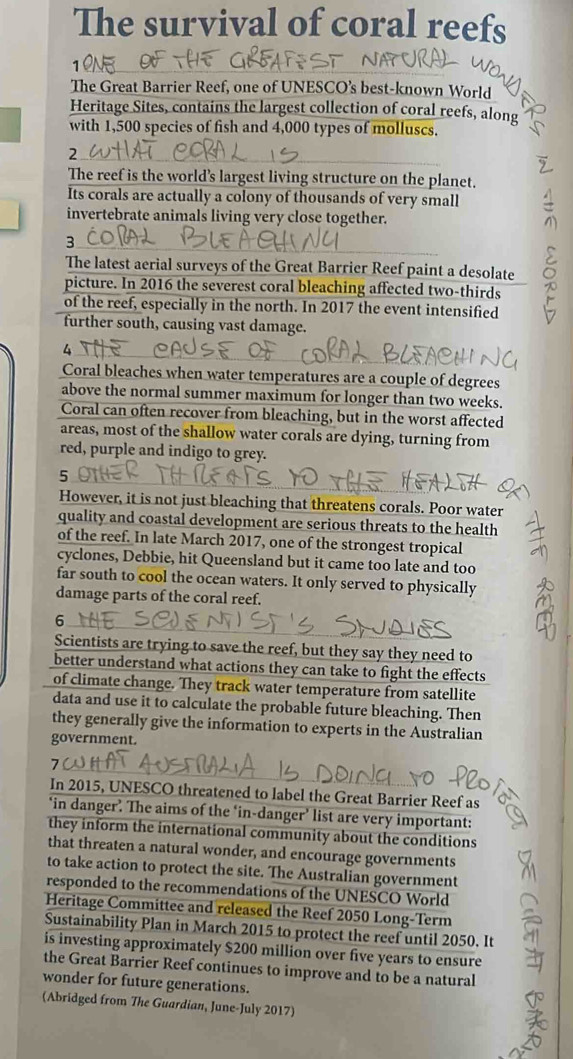 The survival of coral reefs
1 ONE OF THE GREATEST NATURAL WONDERS IN THE WORLD
The Great Barrier Reef, one of UNESCO's best-known World
Heritage Sites, contains the largest collection of coral reefs, along
with 1,500 species of fish and 4,000 types of molluscs.
2 WHAT CORAL IS
The reef is the world's largest living structure on the planet.
Its corals are actually a colony of thousands of very small
invertebrate animals living very close together.
3 CORAL BLEACHING
The latest aerial surveys of the Great Barrier Reef paint a desolate
picture. In 2016 the severest coral bleaching affected two-thirds
of the reef, especially in the north. In 2017 the event intensified
further south, causing vast damage.
4 THE CAUSE OF CORAL BLEACHING
Coral bleaches when water temperatures are a couple of degrees
above the normal summer maximum for longer than two weeks.
Coral can often recover from bleaching, but in the worst affected
areas, most of the shallow water corals are dying, turning from
red, purple and indigo to grey.
5 OTHER THREATS TO THE HEALTH OF THE REEF
However, it is not just bleaching that threatens corals. Poor water
quality and coastal development are serious threats to the health
of the reef. In late March 2017, one of the strongest tropical
cyclones, Debbie, hit Queensland but it came too late and too
far south to cool the ocean waters. It only served to physically
damage parts of the coral reef.
6 THE SCIENTIST'S STUDIES
Scientists are trying to save the reef, but they say they need to
better understand what actions they can take to fight the effects
of climate change. They track water temperature from satellite
data and use it to calculate the probable future bleaching. Then
they generally give the information to experts in the Australian
government.
7 WHAT AUSTRALIA IS DOING TO PROTECT DE GREAT BARR
In 2015, UNESCO threatened to label the Great Barrier Reef as
'in danger'. The aims of the 'in-danger' list are very important:
they inform the international community about the conditions
that threaten a natural wonder, and encourage governments
to take action to protect the site. The Australian government
responded to the recommendations of the UNESCO World
Heritage Committee and released the Reef 2050 Long-Term
Sustainability Plan in March 2015 to protect the reef until 2050. It
is investing approximately $200 million over five years to ensure
the Great Barrier Reef continues to improve and to be a natural
wonder for future generations.
(Abridged from The Guardian, June-July 2017)